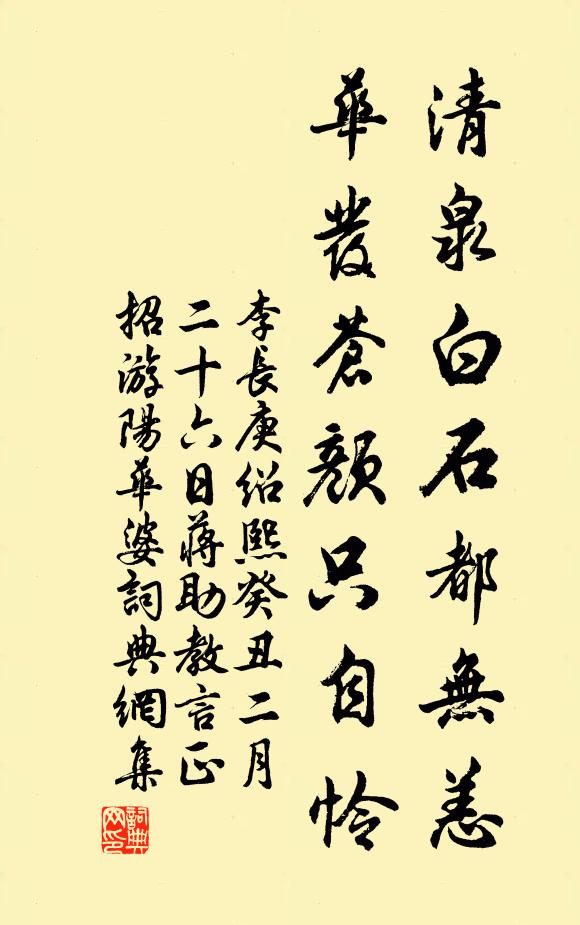 清泉白石都無恙
華發蒼顏只自憐
李長庚紹熙癸丑二月
二十六日蔣助教言正
招游陽華婆詞典網集
詞典
网印